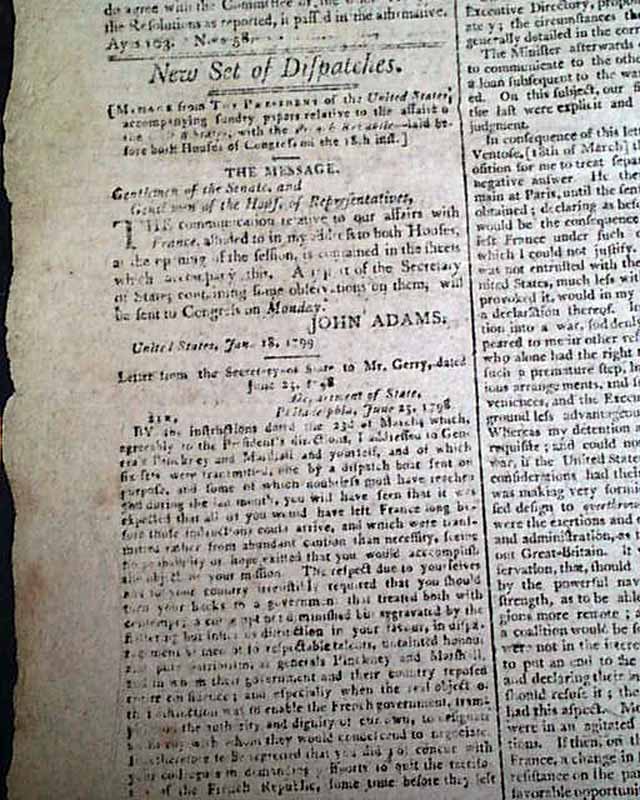 do agree with the Committee of the
the Resolutions as reported, it paſſ'd in the affirmative.
Ays 103. Noes 58.
New Set of Diſpatches.
[Meſſage from The President of the United States,
accompanying ſundry papers relative to the affairs o
the States, with the French Republic—laid be-
fore both Houſes of Congreſs, on the 18th inſt.]
THE MESSAGE.
Gentlemen of the Senate, and
Gentlemen of the Houſe of Repreſentatives,
THE communication relative to our affairs with
France, alluded to in my addreſs to both Houſes,
at the opening of the ſeſſion, is contained in the ſheets
which accompany this. A report of the Secretary
of State, containing ſome obſervations on them, will
be ſent to Congreſs on Monday.
JOHN ADAMS.
United States, Jan. 18, 1799
Letter from the Secretary of State to Mr. Gerry, dated
June 25, 1798
Department of State,
Philadelphia, June 25, 1798
SIR,
BY the inſtructions dated the 23d of March, which,
agreeably to the Preſident's directions, I addreſſed to Gen-
erals Pinckney and Marſhall and yourſelf, and of which
ſix ſets were tranſmitted, one by a diſpatch boat ſent on
purpoſe, and ſome of which doubtleſs muſt have reached
you during the laſt month, you will have ſeen that it was
expected that all of you would have left France long be-
fore thoſe inſtructions could arrive, and which were tranſ-
mitted rather from abundant caution than neceſſity, ſeeing
no probability or hope exiſted that you would accompliſh
the object of your miſſion. The reſpect due to yourſelves
and to your country irreſiſtibly required that you ſhould
turn your backs to a government that treated both with
contempt; a contempt not diminiſhed but aggravated by the
flattering but inſidious diſtinction in your favour, in diſpa-
ragement of men of ſo reſpectable talents, untainted honour
and pure patriotiſm, as generals Pinckney and Marſhall,
and in whom their government and their country repoſed
entire confidence; and eſpecially when the real object o
the diſtinction was to enable the French government, tramp
on the authority and dignity of our own, to deſignate
with whom they would condeſcend to negociate.
It is therefore to be regretted that you did not concur with
your colleagues in demanding paſſports to quit the territo-
of the French Republic, ſome time before they left
Executive Directory,
ate y; the circumſtances
generally detailed in the
The Miniſter afterwards
to communicate to the
a loan ſubſequent to the wa
ed. On this ſubject, our
the laſt were explicit and
judgment.
In conſequence of this
Ventoſe, [18th of March]
oſition for me to treat ſepar
negative anſwer. He
main at Paris, until the
obtained; declaring as
would be the conſequence
left France under ſuch
which I could not juſtify
was not entruſted with the
nited States, much leſs
provoked it, would in my
a declaration thereof. I
tion into a war, ſuddenly
peared to me in other reſ
who alone had the right
ſuch a premature ſtep,
ious arrangements, and
veniences, and the Execu
ground leſs advantageous
Whereas my detention
requiſite; and could not
war, if the United State
conſiderations had their
was making very formi
ſed deſign to overthrow
were the exertions and
and adminiſtration, as
out Great-Britain. It
ſervation, that, ſhould
by the powerful nav
ſtrength, as to be able
gions more remote;
a coalition would be
were not in the intere
to put an end to the
and declaring their in
ſhould refuſe it; the
had this aſpect.
were in an agitated
tions. If then, on th
France, a change in
reſiſtance on the
favorable opportun